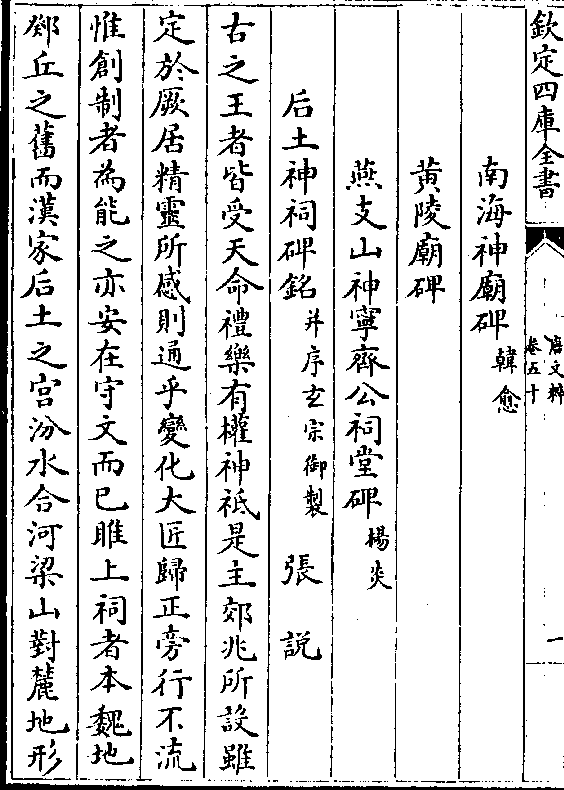 欽定四庫全書
唐文粹
卷五十
一
南海神廟碑 韓愈
黃陵廟碑
燕支山神寧齊公祠堂碑 楊炎
后土神祠碑銘 并序玄宗御製 張説
古之王者皆受天命禮樂有權神祗是主郊兆所設雖
定於厥居精靈所感則通乎變化大匠歸正旁行不流
惟創制者為能之亦安在守文而已脽上祠者本魏地
鄈丘之舊而漢家后土之宮汾水合河梁山對麓地形